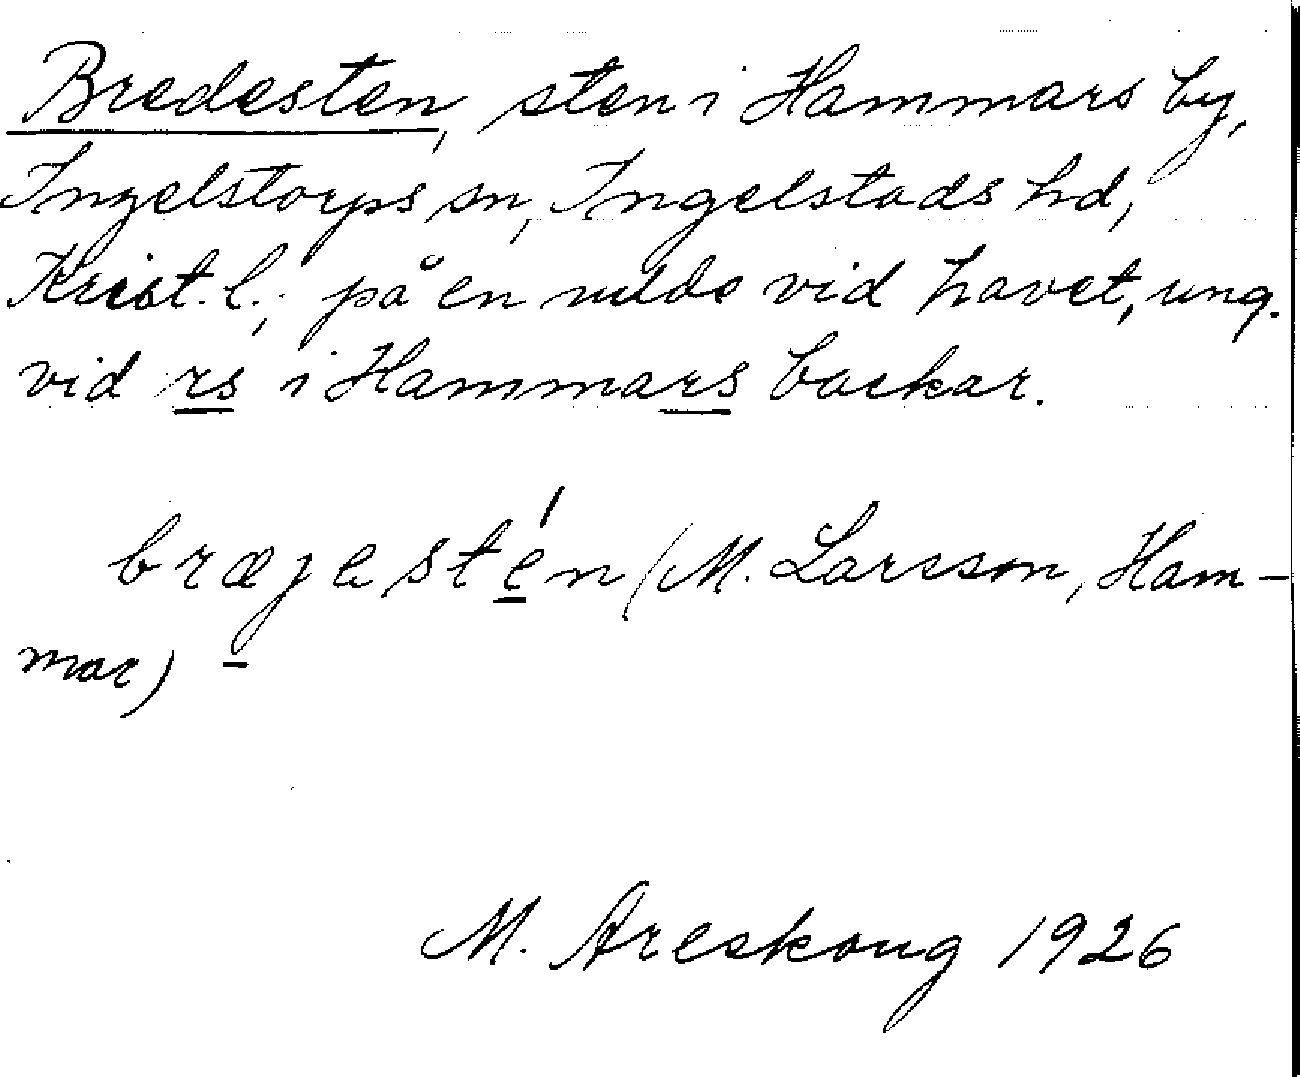 Bredesten, sten i Hammars by,
Ingelstorps sn, Ingelstads hd,
Krist. l.; på en udde vid havet, ung.
vid rs i Hammars backar.
bræjestén (M. Larsson, Ham-
mar)
M. Areskoug 1926